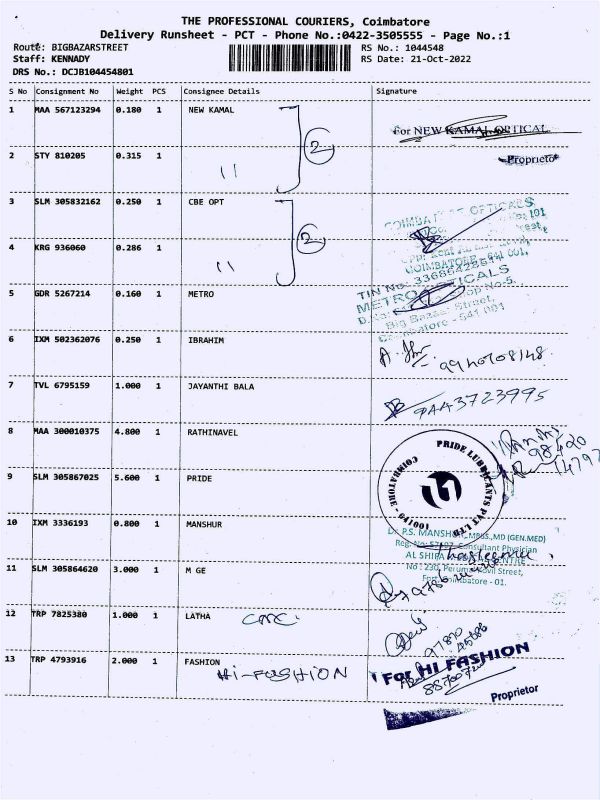 THE PROFESSIONAL COURIERS, Coimbatore
Delivery Runsheet - PCT - Phone No.:0422-3505555 - Page No.:1
Route: BIGBAZARSTREET RS No.: 1044548
Staff: KENNADY RS Date: 21-Oct-2022
DRS No.: DCJB104454801
S No Consignment No Weight PCS Consignee Details Signature
1 MAA 567123294 0.180 1 NEW KAMAL
2
For NEW KAMAL OPTICAL
2 STY 810205 0.315 1 "
Proprietor
3 SLM 305832162 0.250 1 CBE OPT
2
COIMBATORE - 641 001,
4 KRG 936060 0.286 1 "
TIN No.
5 GDR 5267214 0.160 1 METRO
METRO OPTICALS
Big Bazaar Street,
Coimbatore - 641 001
6 IXM 502362076 0.250 1 IBRAHIM
9940708148
7 TVL 6795159 1.000 1 JAYANTHI BALA
8 MAA 300010375 4.800 1 RATHINAVEL
98420
14797
9 SLM 305867025 5.600 1 PRIDE
PRIDE LUBRICANTS PVT LTD
COIMBATORE - 641001
10 IXM 3336193 0.800 1 MANSHUR
Dr. P.S. MANSHUR, MBBS.,MD (GEN.MED)
Consultant Physician
AL SHIFA CENTRE
No : 230, Perumal Kovil Street,
Coimbatore - 01.
11 SLM 305864620 3.000 1 M GE
12 TRP 7825380 1.000 1 LATHA
13 TRP 4793916 2.000 1 FASHION
Hi-FASHION
For HI FASHION
Proprietor